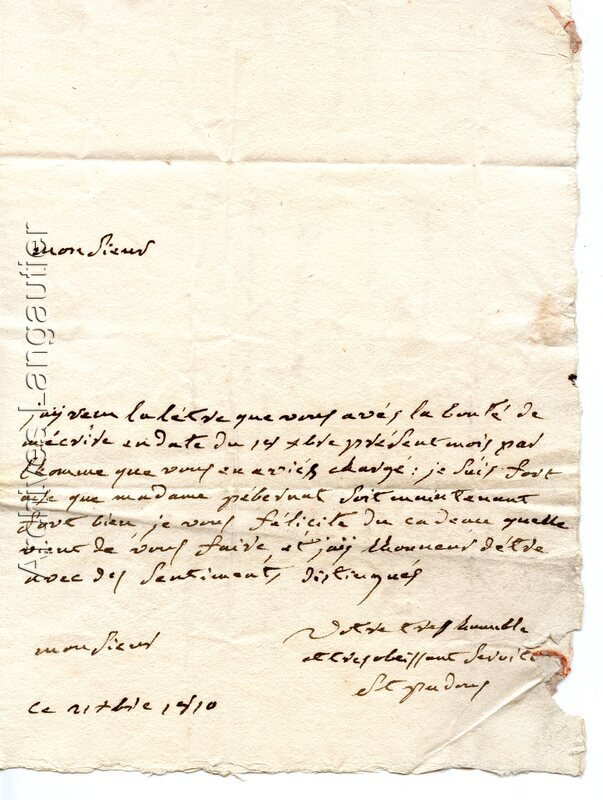 monsieur
jaÿ recu la létre que vous avés la bonté de
mécrire en date du 1er xbre présent mois par
lhomme que vous en aviés chargé: je suis fort
aise que madame pébernat soit maintenant
fort bien je vous félicite du cadeau quelle
vient de vous faire, et jaÿ lhonneur détre
avec des sentiments distingués
monsieur
Votre tres humble
et tres obeissant servite
St
ce 21 xbre
Archives Langautier